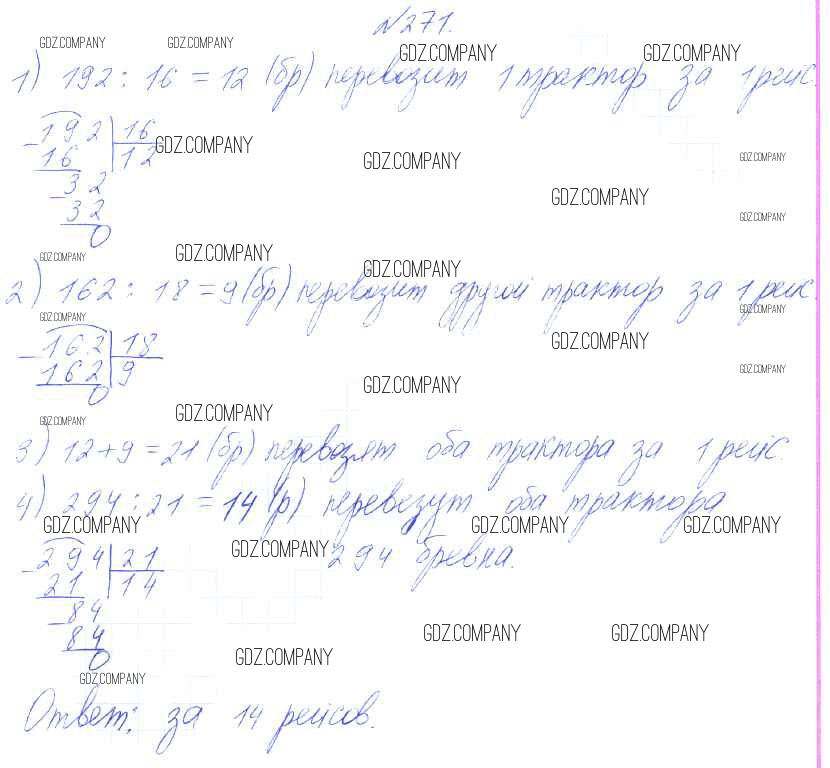 №271.
GDZ.COMPANY GDZ.COMPANY GDZ.COMPANY GDZ.COMPANY
1) 192 : 16 = 12 (бр) перевозит 1 трактор за 1 рейс.
-192 16
16 12
GDZ.COMPANY GDZ.COMPANY GDZ.COMPANY
-32
32
0
GDZ.COMPANY GDZ.COMPANY
GDZ.COMPANY GDZ.COMPANY GDZ.COMPANY
2) 162 : 18 = 9 (бр) перевозит другой трактор за 1 рейс.
GDZ.COMPANY GDZ.COMPANY
-162 18
162 9
0
GDZ.COMPANY GDZ.COMPANY GDZ.COMPANY
GDZ.COMPANY GDZ.COMPANY
3) 12 + 9 = 21 (бр) перевозят оба трактора за 1 рейс.
4) 294 : 21 = 14 (р) перевезут оба трактора
GDZ.COMPANY GDZ.COMPANY GDZ.COMPANY
GDZ.COMPANY 294 бревна.
-294 21
21 14
-84
84
0
GDZ.COMPANY GDZ.COMPANY GDZ.COMPANY
GDZ.COMPANY
Ответ: за 14 рейсов.